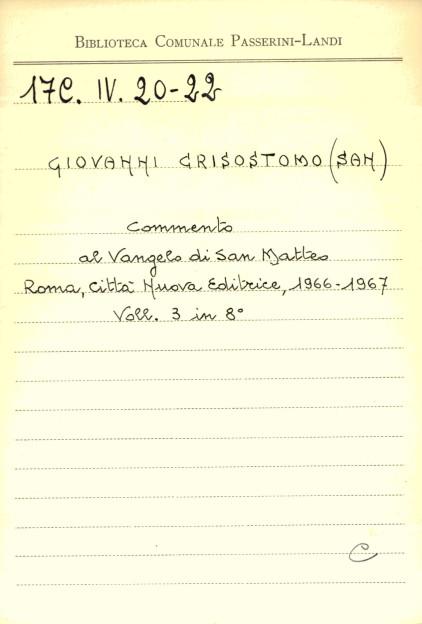 BIBLIOTECA COMUNALE PASSERINI-LANDI
17C. IV. 20-22
GIOVANNI CRISOSTOMO (SAN)
Commento
al Vangelo di San Matteo
Roma, Città Nuova Editrice, 1966-1967
Voll. 3 in 8°
C